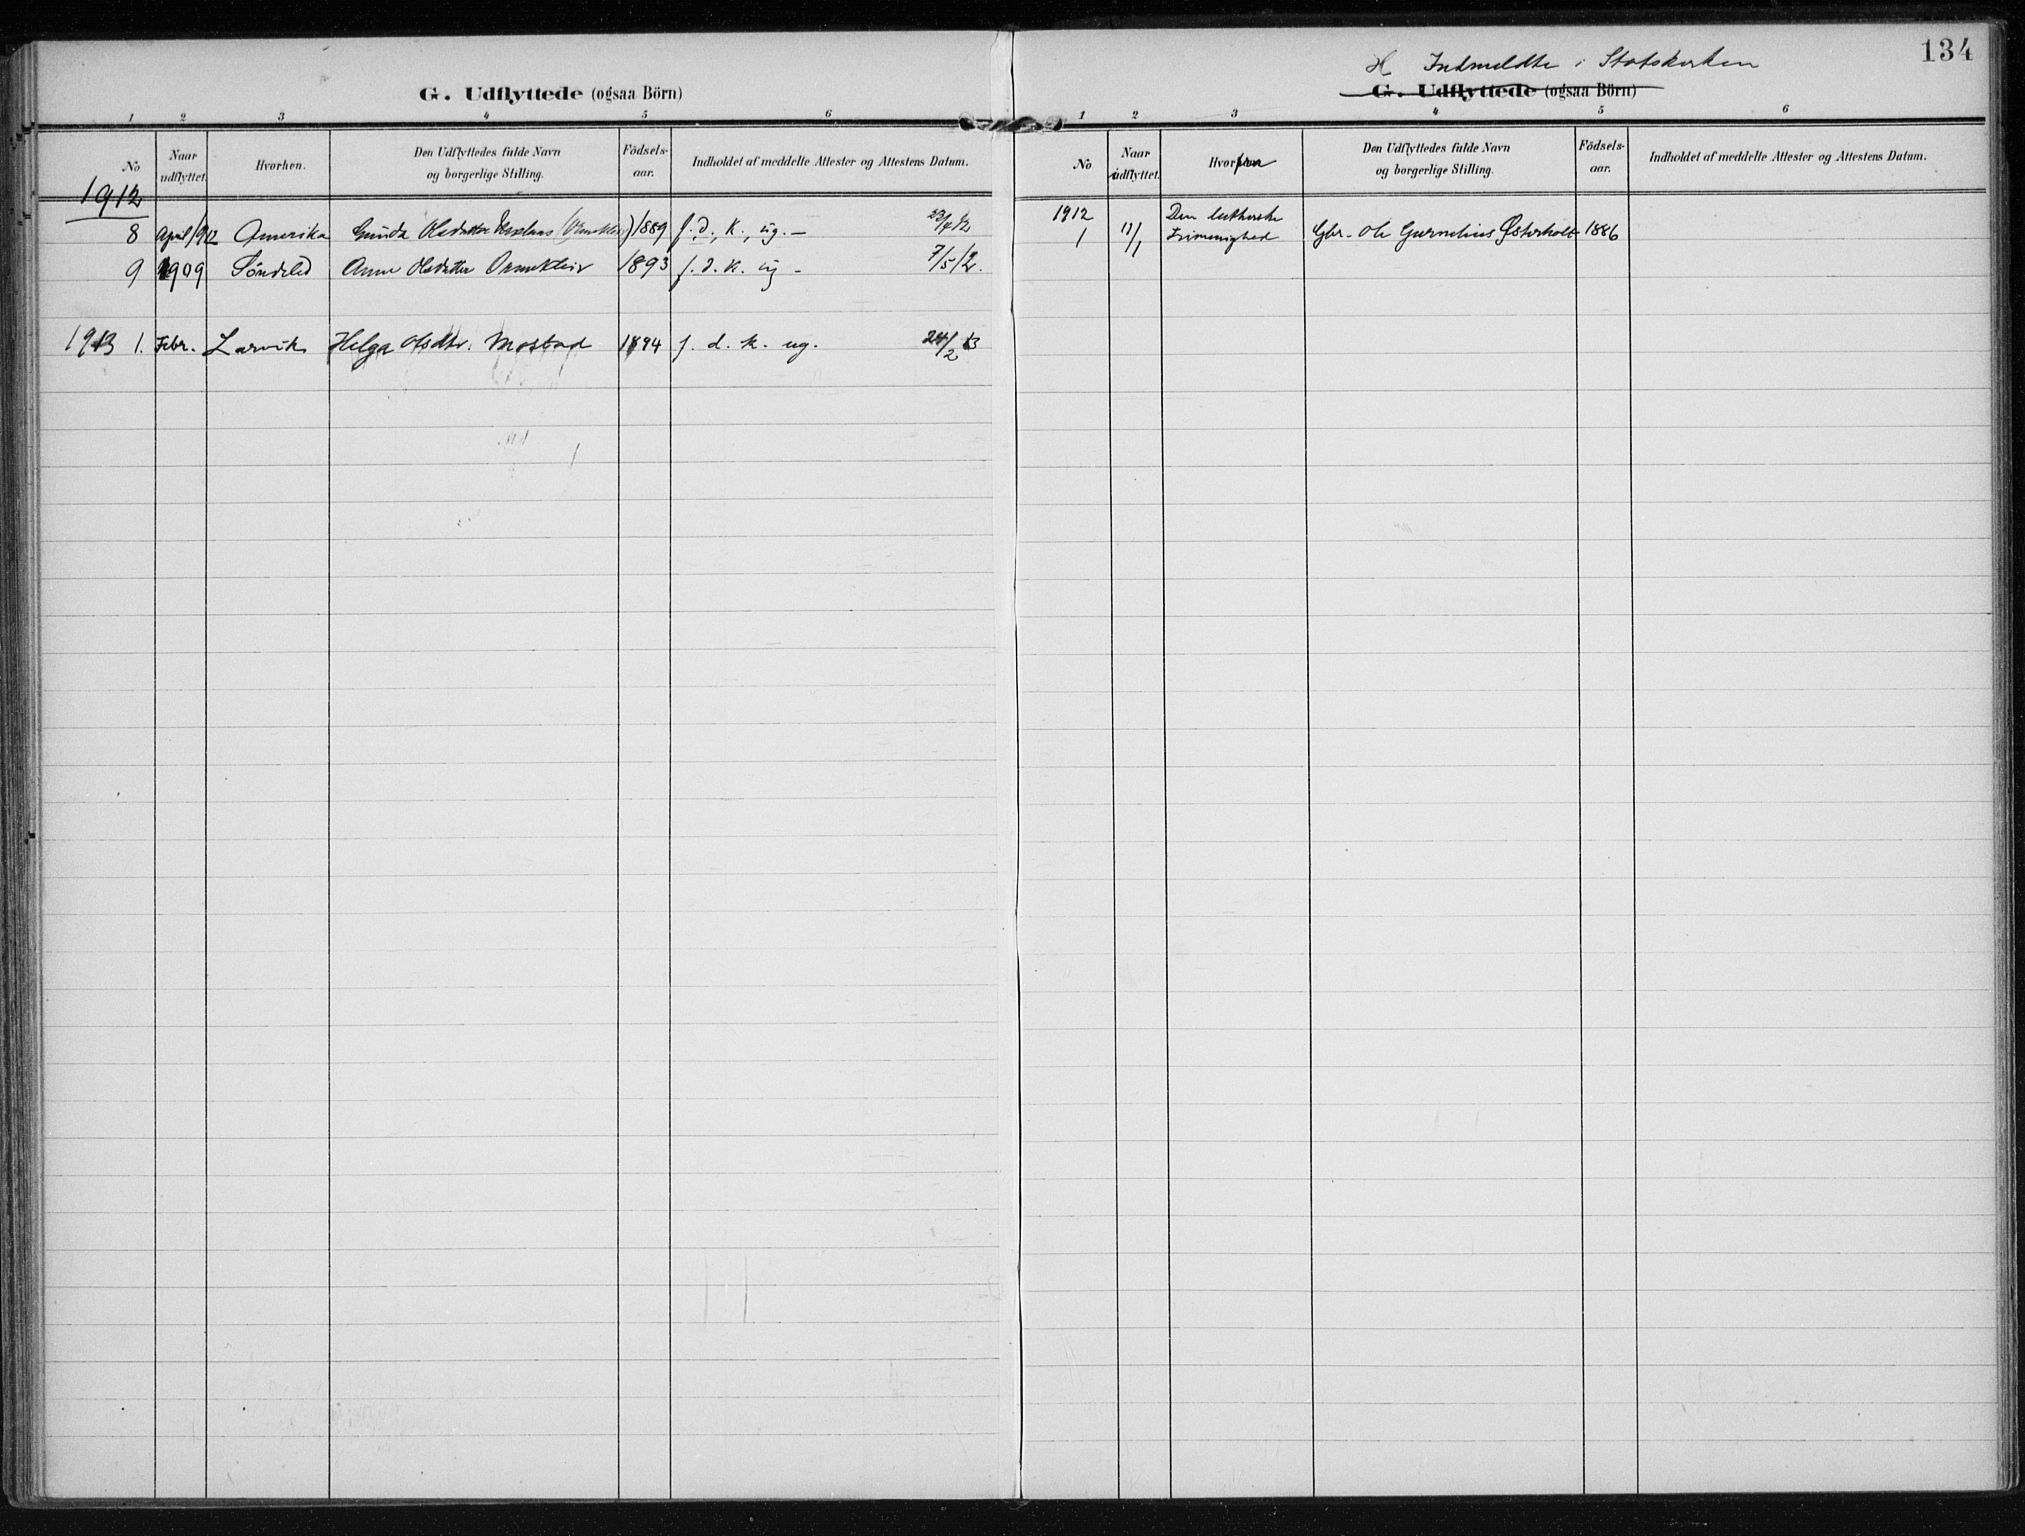 G. Udflyttede (ogsaa Börn)
1 2 3 4 5 6
No Naar udflyttet. Hvorhen. Den Udflyttedes fulde Navn og borgerlige Stilling. Födsels-aar. Indholdet af meddelte Attester og Attestens Datum.
1912
8 April/912 Amerika Gunda Olsdatter 1889 f., d., k., ug. – 23/4 12
9 1909 Söndeled Anne Olsdatter Ormeklev 1893 f. d. k. ug – 7/5 12.
1913 1. Febr. Larvik Helga Olsdtr. Mostad 1894 f. d. k. ug. 24/2 13
134
H Indmeldte i Statskirken
G. Udflyttede (ogsaa Börn)
1 2 3 4 5 6
No Naar udflyttet. Hvorfra Den Udflyttedes fulde Navn og borgerlige Stilling. Födsels-aar. Indholdet af meddelte Attester og Attestens Datum.
1912 Den lutherske
1 Frimenighed Gbr. Ole Gurnelius Østerholt 1886